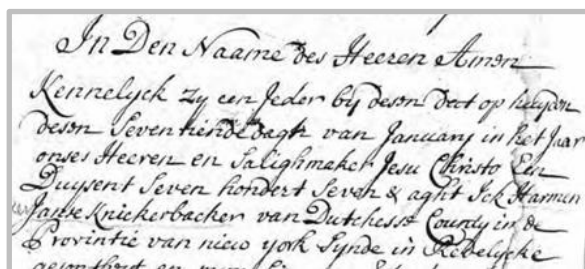 In Den Naame des Heeren Amen
Kennelyck zy een Jeder by desen dat op huyden
desen Seventiende dagh van January in het Jaar
onses Heeren en Salighmaker Jesu Christo Een
Duysent Seven hondert Seven & aght Ick Harmen
Janse Knickerbacker van Dutchess County in de
Provintie van nieu york Synde in Redelycke
gesontheyt en